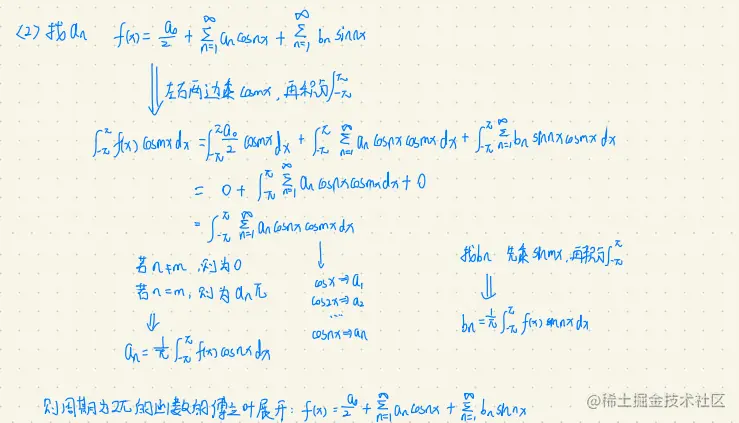 (2) 找aₙ f(x) = a₀/2 + ∑_{n=1}^{∞} aₙ cosnx + ∑_{n=1}^{∞} bₙ sinnx
左右两边乘cosmx, 再积分∫_{-π}^{π}
∫_{-π}^{π} f(x) cosmx dx = ∫_{-π}^{π} a₀/2 cosmx dx + ∫_{-π}^{π} ∑_{n=1}^{∞} aₙ cosnx cosmx dx + ∫_{-π}^{π} ∑_{n=1}^{∞} bₙ sinnx cosmx dx
= 0 + ∫_{-π}^{π} ∑_{n=1}^{∞} aₙ cosnx cosmx dx + 0
= ∫_{-π}^{π} ∑_{n=1}^{∞} aₙ cosnx cosmx dx
若n≠m, 则为0
若n=m, 则为aₙπ
aₙ = 1/π ∫_{-π}^{π} f(x) cosnx dx
cosx ⇒ a₁
cos2x ⇒ a₂
...
cosnx ⇒ aₙ
找bₙ 先乘sinmx, 再积分∫_{-π}^{π}
bₙ = 1/π ∫_{-π}^{π} f(x) sinnx dx
则周期为2π的函数的傅立叶展开: f(x) = a₀/2 + ∑_{n=1}^{∞} aₙ cosnx + ∑_{n=1}^{∞} bₙ sinnx
@稀土掘金技术社区